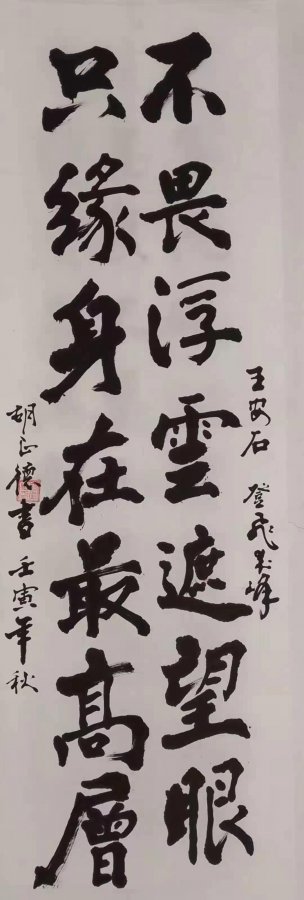 王安石 登飞来峰
不畏浮雲遮望眼
只緣身在最高層
胡正德書 壬寅年秋